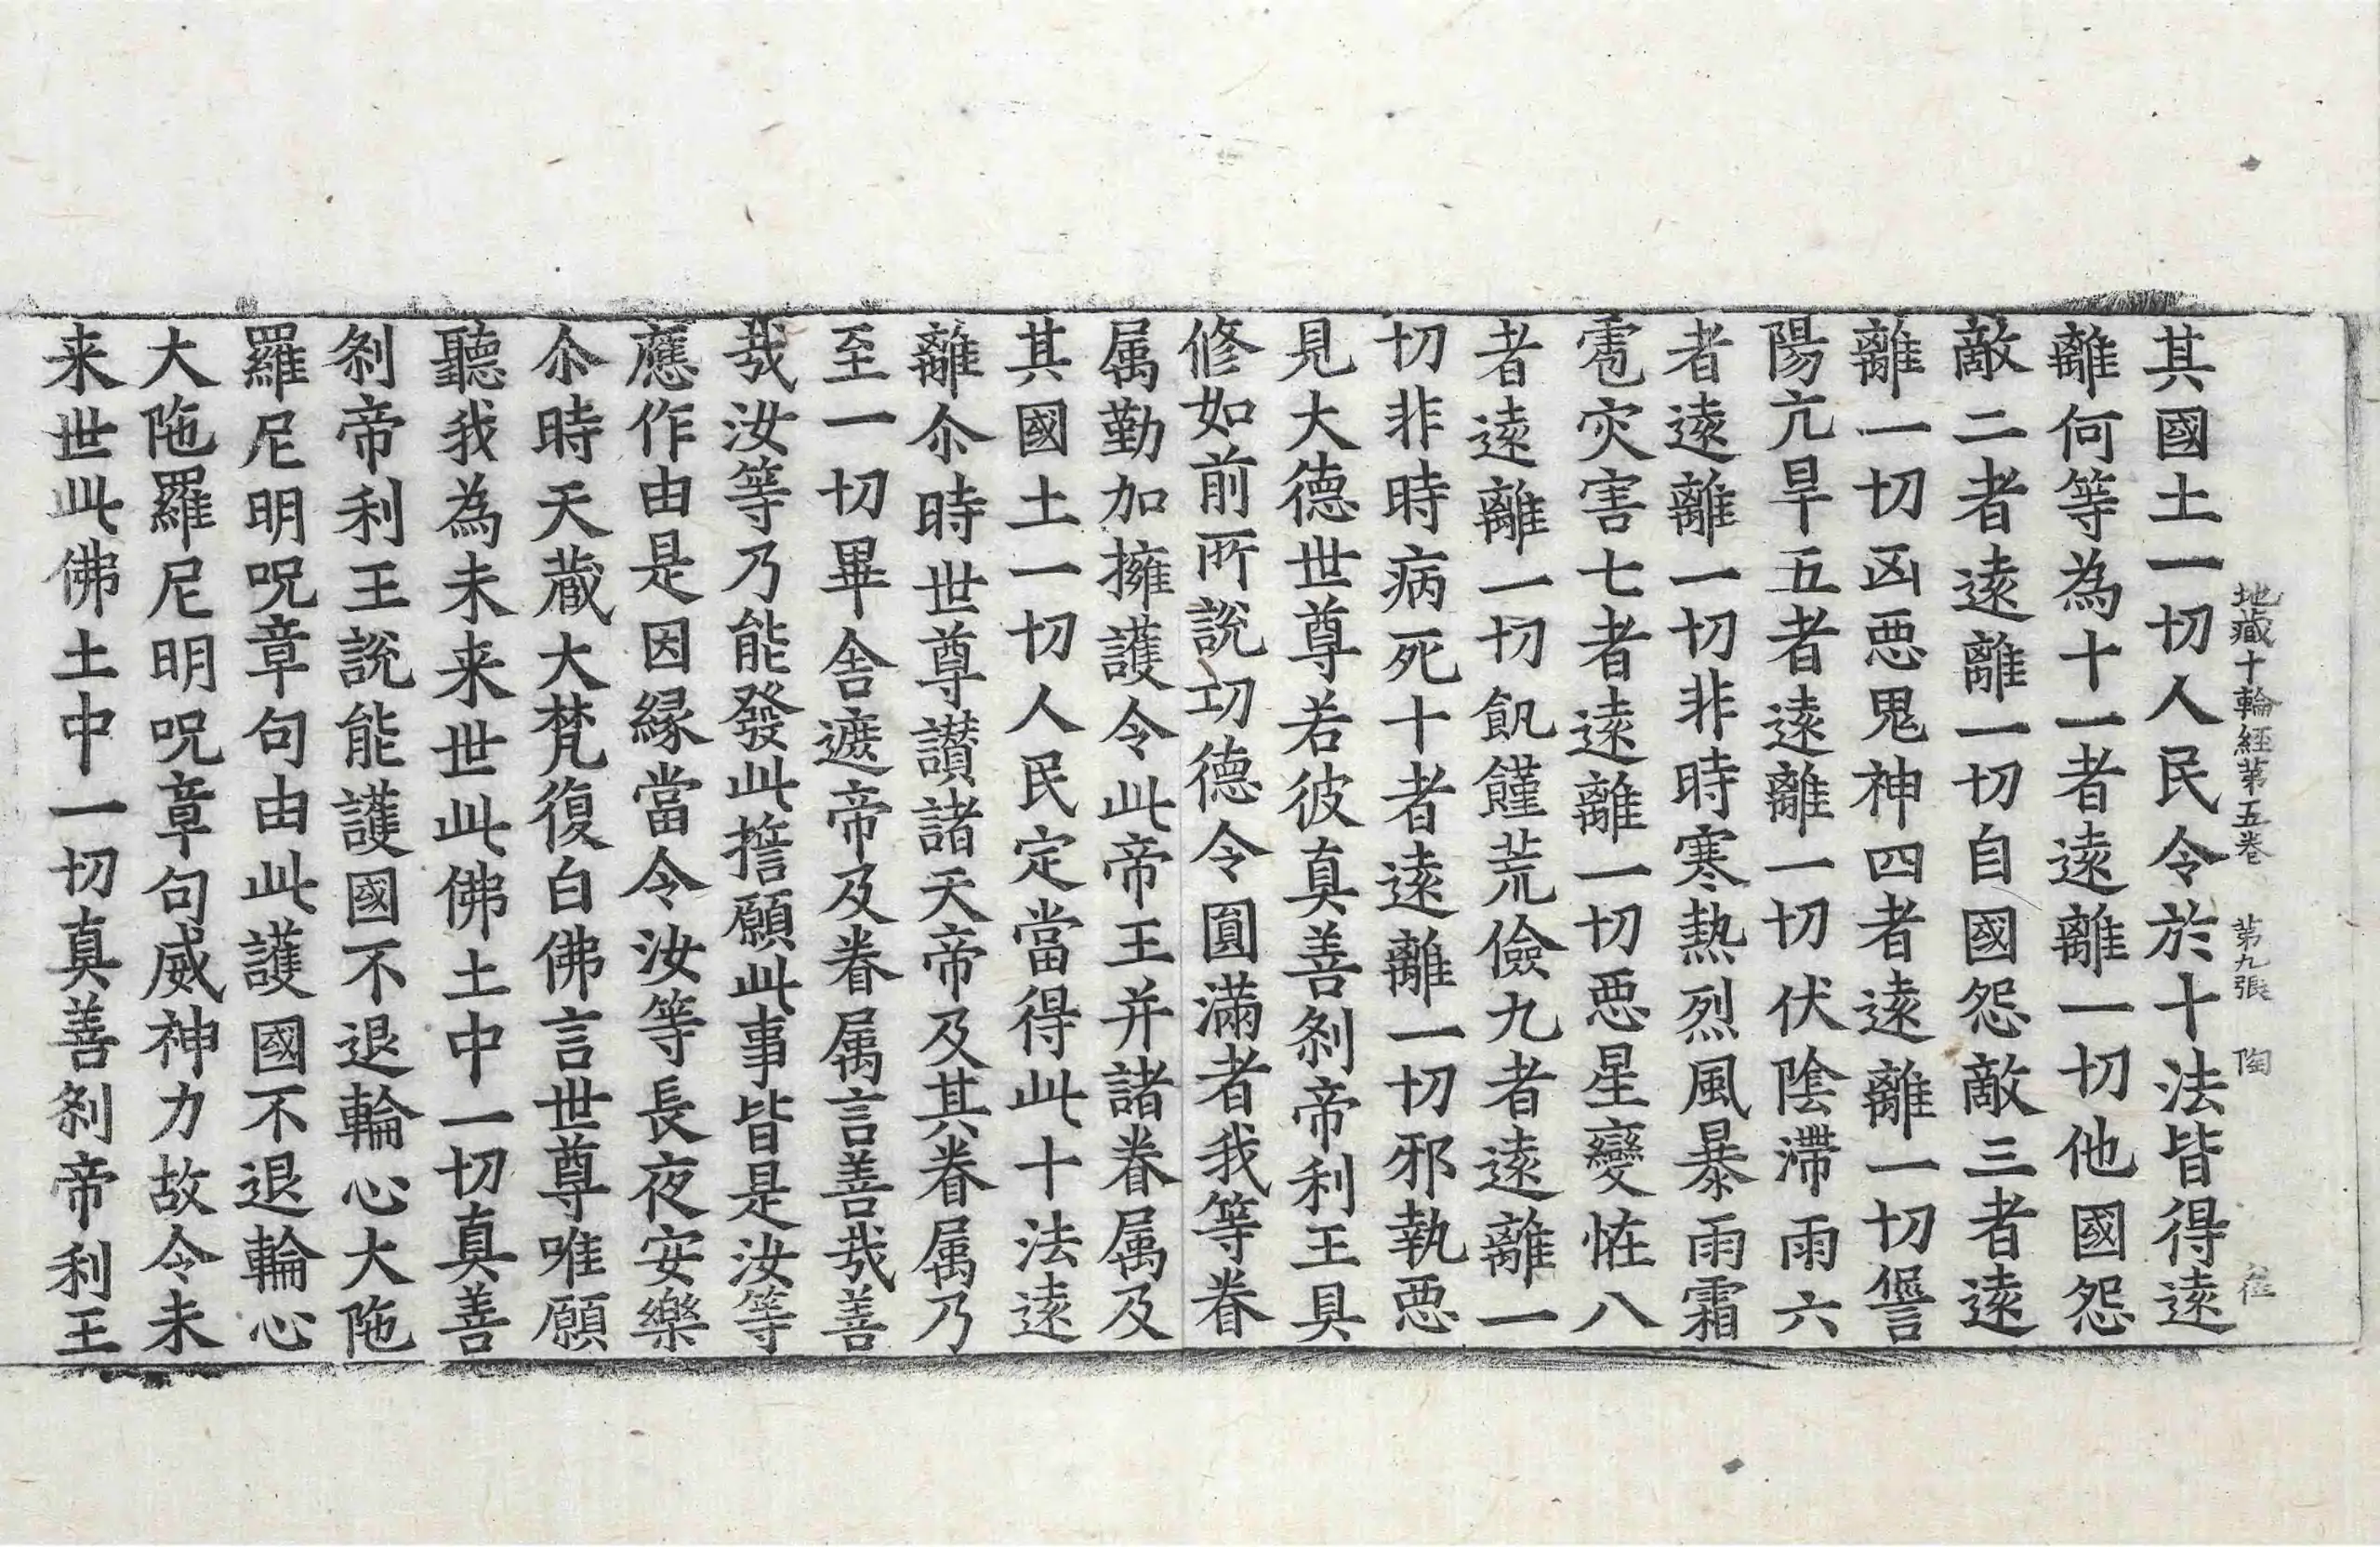 地藏十輪經第五卷 第九張 陶
其國土一切人民令於十法皆得遠
離何等為十一者遠離一切他國怨
敵二者遠離一切自國怨敵三者遠
離一切凶惡鬼神四者遠離一切愆
陽亢旱五者遠離一切伏陰滯雨六
者遠離一切非時寒熱烈風暴雨霜
雹灾害七者遠離一切惡星變恠八
者遠離一切飢饉荒儉九者遠離一
切非時病死十者遠離一切邪執惡
見大德世尊若彼真善刹帝利王具
修如前所說功德令圓滿者我等眷
属勤加擁護令此帝王并諸眷属及
其國土一切人民定當得此十法遠
離尒時世尊讃諸天帝及其眷属乃
至一切畢舍遮帝及眷属言善㢤善
㢤汝等乃能發此誓願此事皆是汝等
應作由是因緣當令汝等長夜安樂
尒時天藏大梵復白佛言世尊唯願
聽我為未来世此佛土中一切真善
刹帝利王說能護國不退輪心大陁
羅尼明呪章句由此護國不退輪心
大陁羅尼明呪章句威神力故令未
来世此佛土中一切真善刹帝利王